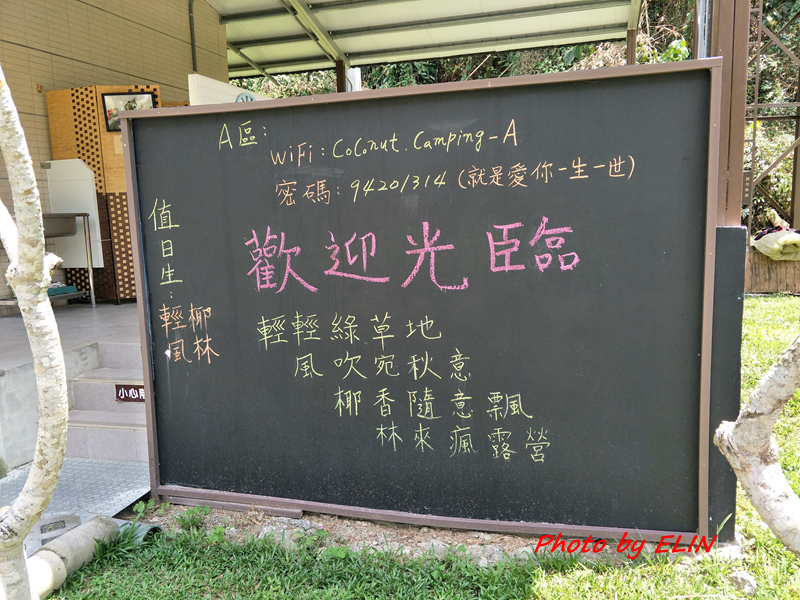 A區:
WiFi: Coconut.Camping-A
密碼: 94201314 (就是愛你一生一世)
歡迎光臨
值日生:
輕風
椰林
輕輕綠草地
風吹宛秋意
椰香隨意飄
林來瘋露營
小心階
Photo by ELIN